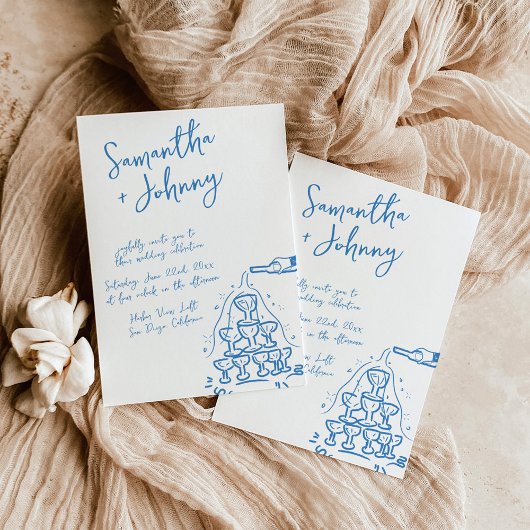 Samantha
+ Johnny
joyfully invite you to
their wedding celebration
Saturday, June 22nd, 20xx
at four o'clock in the afternoon
Harbor View Loft
San Diego California
Samantha
+ Johnny
joyfully invite you to
wedding celebration
June 22nd, 20xx
in the afternoon
Loft
California